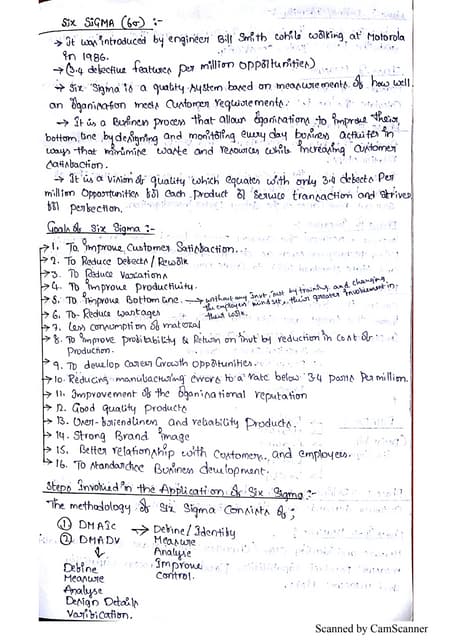 SIX SIGMA (6σ) :-
→ It was introduced by engineer Bill Smith while walking at Motorola
in 1986.
→ (3.4 defective features per million opportunities)
→ Six Sigma is a quality system based on measurements of how well
an Organisation meets Customer requirements.
→ It is a Business process that allow Organisations to improve their
bottom line by designing and monitoring every day business activities in
ways that minimise waste and resources while increasing customer
satisfaction.
→ It is a vision of quality which equates with only 3.4 defects Per
million Opportunities for each product or service transaction and strives
for perfection.
Goals of Six Sigma :-
→ 1. To Improve Customer Satisfaction.
→ 2. To Reduce Defects / Rework
→ 3. To Reduce Variations
→ 4. To improve productivity
→ 5. To improve Bottom line → without any Inst, just by training and changing
the employees mindset, their greater involvement in
their work.
→ 6. To Reduce wantages
→ 7. Less consumption of material
→ 8. To improve profitability & Return on Invt by reduction in Cost of
Production.
→ 9. To develop Career Growth opportunities.
→ 10. Reducing manufacturing errors to a rate below 3.4 parts Per million.
→ 11. Improvement of the Organisational reputation
→ 12. Good quality products
→ 13. User-friendliness and reliability Products.
→ 14. Strong Brand image
→ 15. Better relationship with Customers and employees.
→ 16. To standardise Business development.
Steps Involved in the Application of Six Sigma :-
The methodology of Six Sigma Consists of ;
① DMAIC → Define / Identify
② DMADV Measure
↓ Analyse
Define Improve
Measure Control.
Analyse
Design Details
Varification.
Scanned by CamScanner